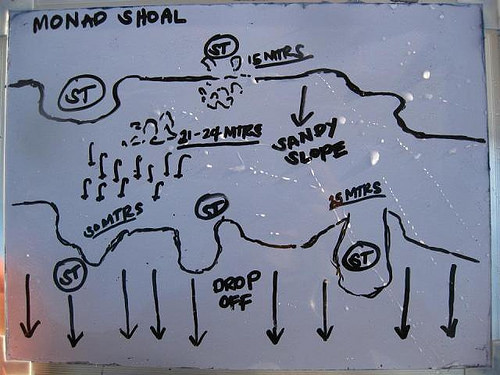 MONAD SHOAL
ST
15 MTRS
ST
21-24 MTRS
SANDY
SLOPE
30 MTRS
ST
25 MTRS
ST
ST
DROP
OFF